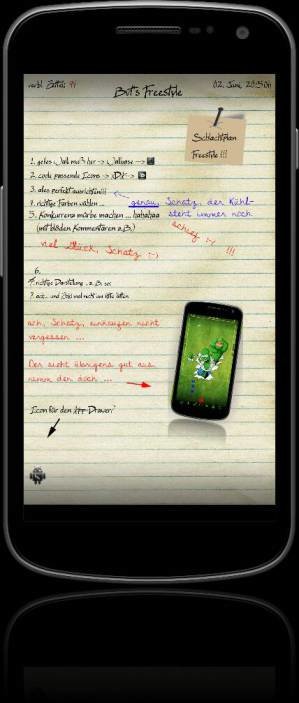 verbl. Zettel:
02. Juni, 20:35h
Bot's Freestyle
Schlachtplan
Freestyle !!!
1. geiles Wall muß her -> Wallbase ->
2. coole passende Icons ->
3. alles perfekt ausrichten!!!
4. richtige Farben wählen ...
genau, Schatz, der Kühl-
5. Konkurrenz mürbe machen ... hahahaa
steht immer noch
(mit blöden Kommentaren z.B.)
schief :-(
!!!
viel Glück, Schatz :-)
6.
7. richtige Darstellung
ach, Schatz, einkaufen nicht
vergessen ...
Der sieht übrigens gut aus,
nimm den doch ...
Icon für den App Drawer?